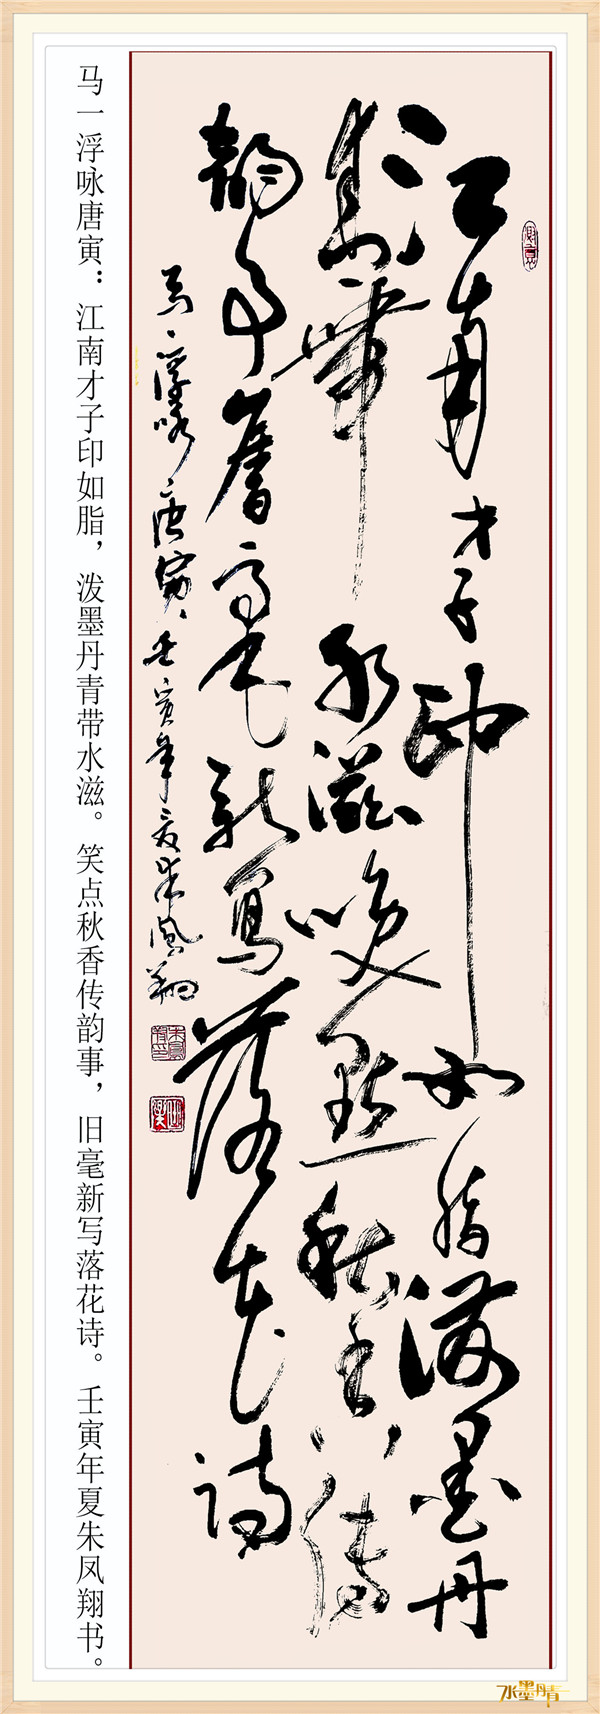 江南才子印如脂潑墨丹
青帶水滋笑點秋香傳
韻事舊毫新寫落花詩
马一浮咏唐寅 壬寅年夏朱鳳翔
马一浮咏唐寅：江南才子印如脂，泼墨丹青带水滋。笑点秋香传韵事，旧毫新写落花诗。壬寅年夏朱凤翔书。
水墨丹青